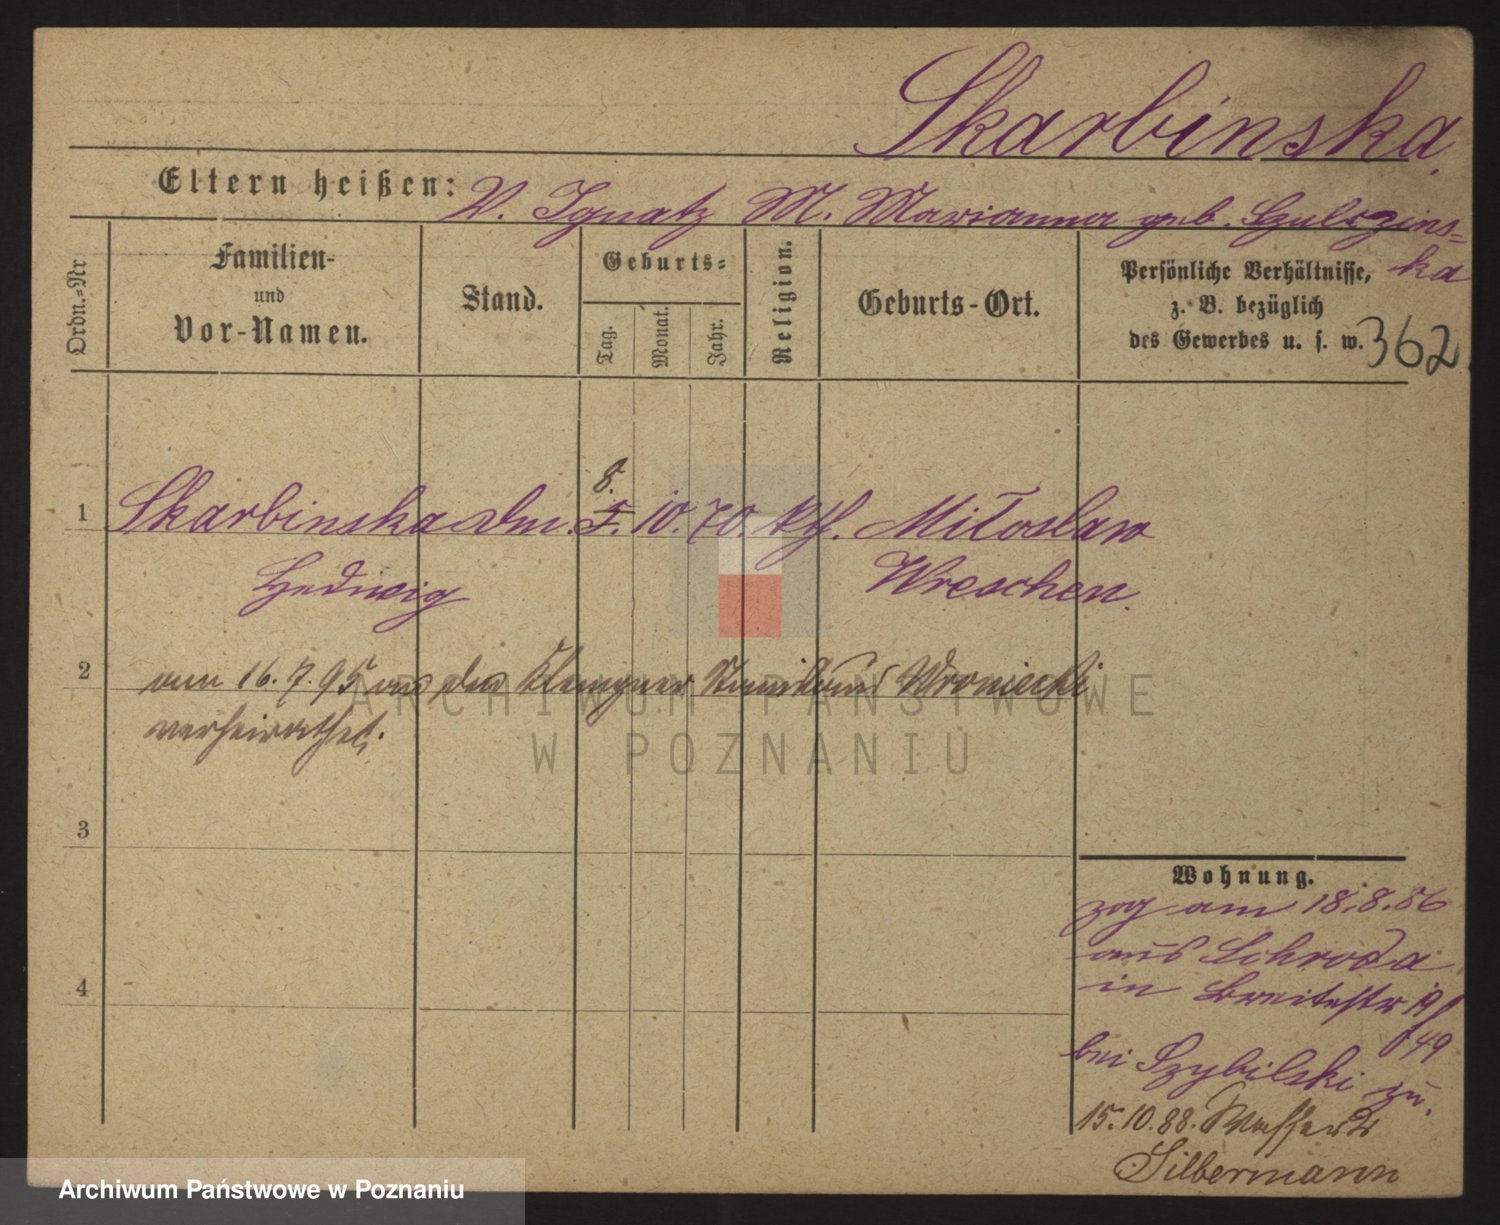 Skarbinska
Eltern heißen: V. Ignatz M. Marianna geb. Szulczins=
ka
Ordn.=Nr
Familien-
und
Vor-Namen.
Stand.
Geburts=
Tag.
Monat.
Jahr.
Religion.
Geburts-Ort.
Persönliche Verhältnisse,
z. B. bezüglich
des Gewerbes u. s. w.
362
8.
1 Skarbinska Dm. 5. 10. 70. kth. Miłoslaw
Hedwig Wreschen.
2 am 16. 7. 95 an den Klempner Wroniecki
verheirathet.
3
4
Wohnung.
zog am 18.8.86
aus Schroda
in Breitestr 19/
49
bei Szybilski zu.
15.10.88. Wasser 2
Silbermann
ARCHIWUM PAŃSTWOWE
W POZNANIU
Archiwum Państwowe w Poznaniu